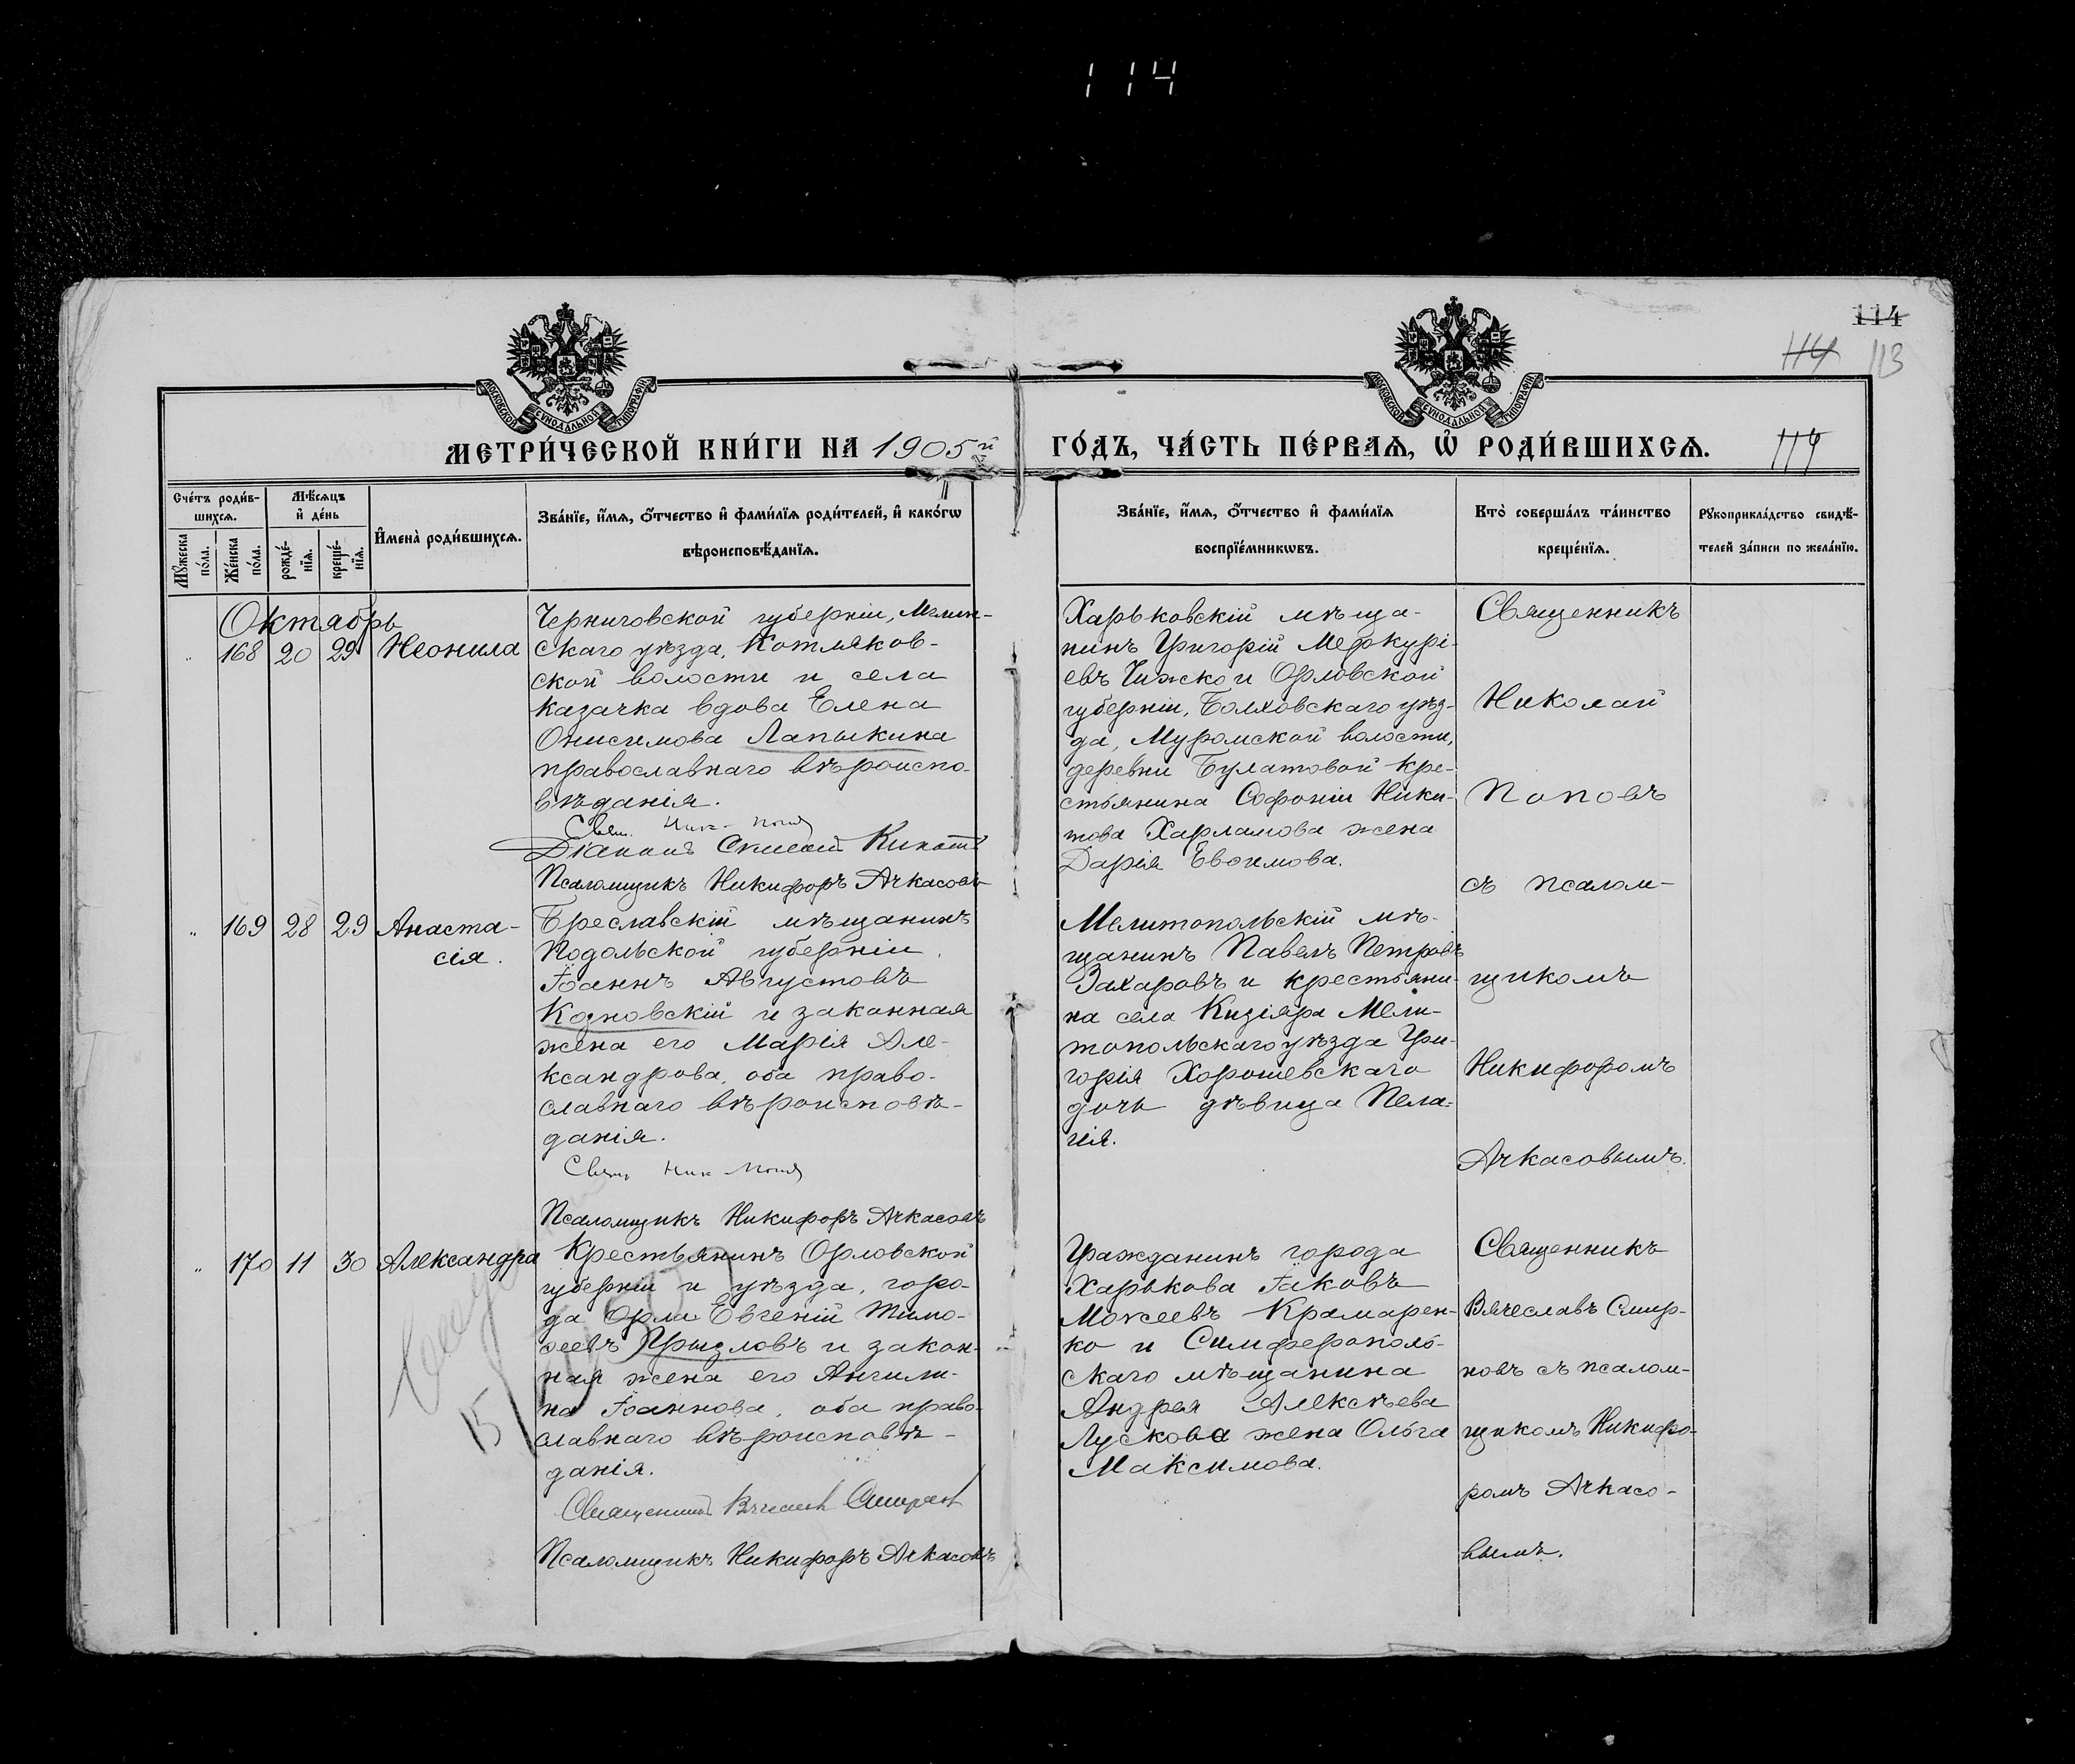 114
114
114 113
МОСКОВСКОЙ СУНОДАЛЬНОЙ ТИПОГРАФІИ
МОСКОВСКОЙ СУНОДАЛЬНОЙ ТИПОГРАФІИ
МЕТРИ́ЧЕСКОЙ КНИ́ГИ НА 1905й ГО́ДЪ, ЧА́СТЬ ПЕ́РВАѦ, Ѡ҆ РОДИ́ВШИХСѦ.
114
Сче́тъ роди́в-
шихсѧ.
Мꙋ́жеска по́ла.
Же́нска по́ла.
Мѣ́сѧцъ
и҆ де́нь
рожде́-
нїѧ.
креще́-
нїѧ.
И҆мена̀ роди́вшихсѧ.
Зва́нїе, и҆́мѧ, ѻ҆́тчество и҆ фами́лїѧ роди́телей, и҆ како́гѡ
вѣроисповѣ́данїѧ.
Зва́нїе, и҆́мѧ, ѻ҆́тчество и҆ фами́лїѧ
воспрїе́мникѡвъ.
Кто̀ соверша́лъ та́инство
креще́нїѧ.
Рꙋкоприкла́дство свидѣ́-
телей за́писи по жела́нїю.
Октябрь
" 168 20 29 Неонила
Черниговской губерніи, Мглин-
скаго уѣзда, Котляков-
ской волости и села
Казачка вдова Елена
Онисимова Лапыкина
православнаго вѣроиспо-
вѣданія.
Свящ. Ник. Попов
Діаконъ
Псаломщикъ Никифоръ Ачкасовъ
Харьковскій мѣща-
нинъ Григорій Меркурі-
евъ Чижско и Орловской
губерніи, Болховскаго уѣз-
да, Муромской волости,
деревни Булатовой кре-
стьянина Софоніи Ники-
това Харламова жена
Дарія Евѳимова.
Священникъ
Николай
Поповъ
съ псалом-
щикомъ
Никифоромъ
Ачкасовымъ.
" 169 28 29 Анаста-
сія.
Бреславскій мѣщанинъ
Подольской губерніи
Іоаннъ Августовъ
Козновскій и законная
жена его Марія Але-
ксандрова, оба право-
славнаго вѣроисповѣ-
данія.
Свящ. Ник. Попов
Псаломщикъ Никифоръ Ачкасовъ
Мелитопольскій мѣ-
щанинъ Павелъ Петровъ
Захаровъ и крестьяни-
на села Кизіяра Мели-
топольскаго уѣзда Гри-
горія Хорошевскаго
дочь дѣвица Пела-
гія.
" 170 11 30 Александра
Крестьянинъ Орловской
губерніи и уѣзда, горо-
да Орла Евгеній Тимо-
ѳеевъ Грызловъ и закон-
ная жена его Ангели-
на Іоаннова, оба право-
славнаго вѣроисповѣ-
данія.
Священникъ Вячеслав Смирнов
Псаломщикъ Никифоръ Ачкасовъ
Гражданинъ города
Харькова Іаковъ
Моисеевъ Крамарен-
ко и Симферополь-
скаго мѣщанина
Андрея Алексѣева
Лускова жена Ольга
Максимова.
Священникъ
Вячеславъ Смир-
новъ съ псалом-
щикомъ Никифо-
ромъ Ачкасо-
вымъ.